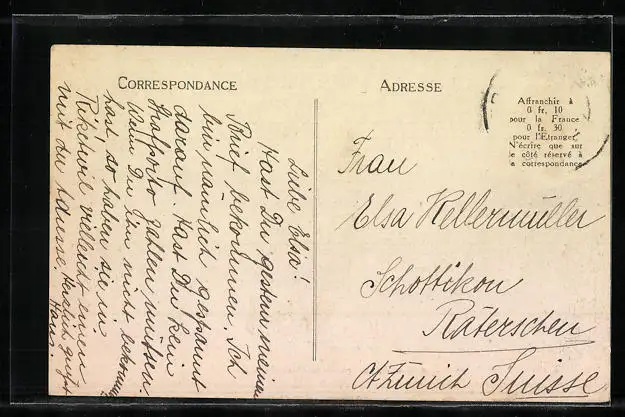 CORRESPONDANCE
Liebe Elsa!
Hast Du gestern meinen
Brief bekommen. Ich
bin nämlich gespannt
darauf. Hast Du kein
Strafporto zahlen müssen.
Wenn Du ihn nicht bekommen
hast so haben sie in
Riketwil vielleicht einen
mit der Adresse. Herzlich grüsst
Hans.
ADRESSE
Affranchir à
0 fr. 10
pour la France
0 fr. 30
pour l'Etranger
N'écrire que sur
le côté réservé à
la correspondance
Frau
Elsa Kellermüller
Schottikon
Räterschen
Ct. Zürich Suisse